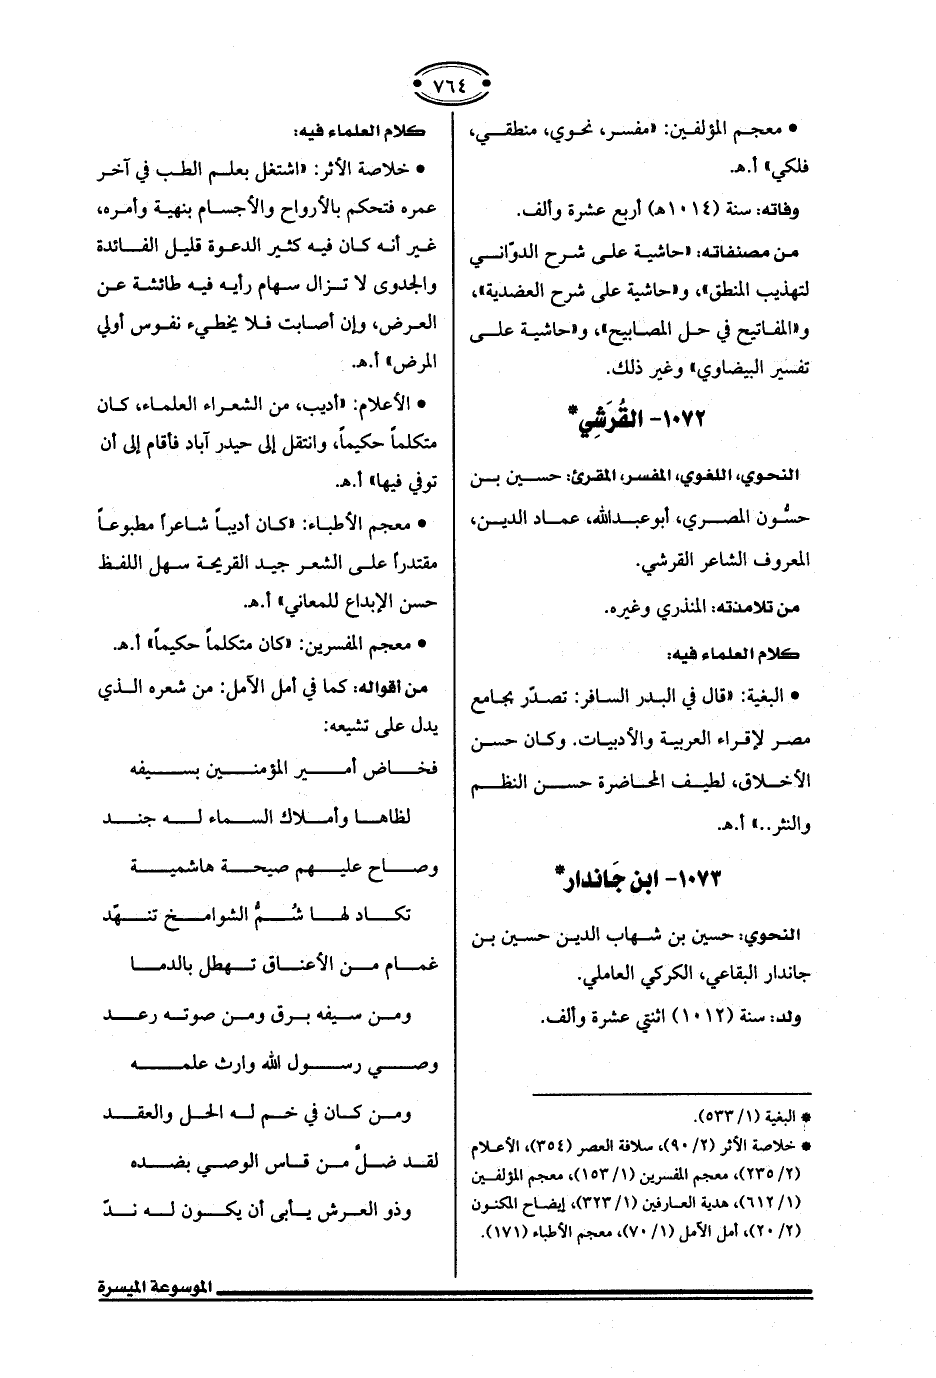 ٧٦٤
• معجم المؤلفين: «مفسر، نحوي، منطقي،
فلكي» أ.هـ.
وفاته: سنة (١٠١٤هـ) أربع عشرة وألف.
من مصنفاته: «حاشية على شرح الدوّاني
لتهذيب المنطق»، و«حاشية على شرح العضدية»،
و«المفاتيح في حل المصابيح»، و«حاشية على
تفسير البيضاوي» وغير ذلك.
١٠٧٢- القُرَشِي*
النحوي، اللغوي، المفسر، المقرئ: حسين بن
حسُّون المصري، أبوعبدالله، عماد الدين،
المعروف الشاعر القرشي.
من تلامذته: المنذري وغيره.
كلام العلماء فيه:
• البغية: «قال في البدر السافر: تصدّر بجامع
مصر لإقراء العربية والأدبيات. وكان حسن
الأخلاق، لطيف المحاضرة حسن النظم
والنثر..» أ.هـ.
١٠٧٣- ابن جَاندار*
النحوي: حسين بن شهاب الدين حسين بن
جاندار البقاعي، الكركي العاملي.
ولد: سنة (١٠١٢) اثنتي عشرة وألف.
* البغية (١/ ٥٣٣).
* خلاصة الأثر (٢/ ٩٠)، سلافة العصر (٣٥٤)، الأعلام
(٢/ ٢٣٥)، معجم المفسرين (١/ ١٥٣)، معجم المؤلفين
(١/ ٦١٢)، هدية العارفين (١/ ٣٢٣)، إيضاح المكنون
(٢/ ٢٠)، أمل الآمل (١/ ٧٠)، معجم الأطباء (١٧١).
كلام العلماء فيه:
• خلاصة الأثر: «اشتغل بعلم الطب في آخر
عمره فتحكم بالأرواح والأجسام بنهية وأمره،
غير أنه كان فيه كثير الدعوة قليل الفائدة
والجدوى لا تزال سهام رأيه فيه طائشة عن
العرض، وإن أصابت فلا يخطيء نفوس أولي
المرض» أ.هـ.
• الأعلام: «أديب، من الشعراء العلماء، كان
متكلماً حكيماً، وانتقل إلى حيدر آباد فأقام إلى أن
توفي فيها» أ.هـ.
• معجم الأطباء: «كان أديباً شاعراً مطبوعاً
مقتدراً على الشعر جيد القريحة سهل اللفظ
حسن الإبداع للمعاني» أ.هـ.
• معجم المفسرين: «كان متكلماً حكيماً» أ.هـ.
من أقواله: كما في أمل الآمل: من شعره الذي
يدل على تشيعه:
فخاض أمير المؤمنين بسيفه
لظاها وأملاك السماء له جند
وصاح عليهم صيحة هاشمية
تكاد لها شُمُّ الشوامخ تنهّد
غمام من الأعناق تهطل بالدما
ومن سيفه برق ومن صوته رعد
وصي رسول الله وارث علمه
ومن كان في خم له الحل والعقد
لقد ضلّ من قاس الوصي بضده
وذو العرش يأبى أن يكون له ندّ
الموسوعة الميسرة